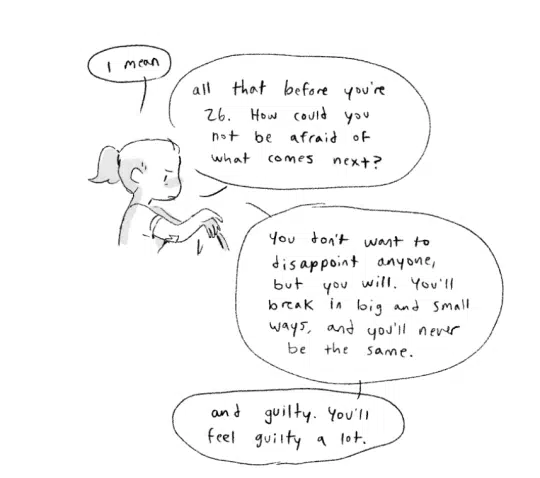 I mean
all that before you're
26. How could you
not be afraid of
what comes next?
You don't want to
disappoint anyone,
but you will. You'll
break in big and small
ways, and you'll never
be the same.
and guilty. You'll
feel guilty a lot.